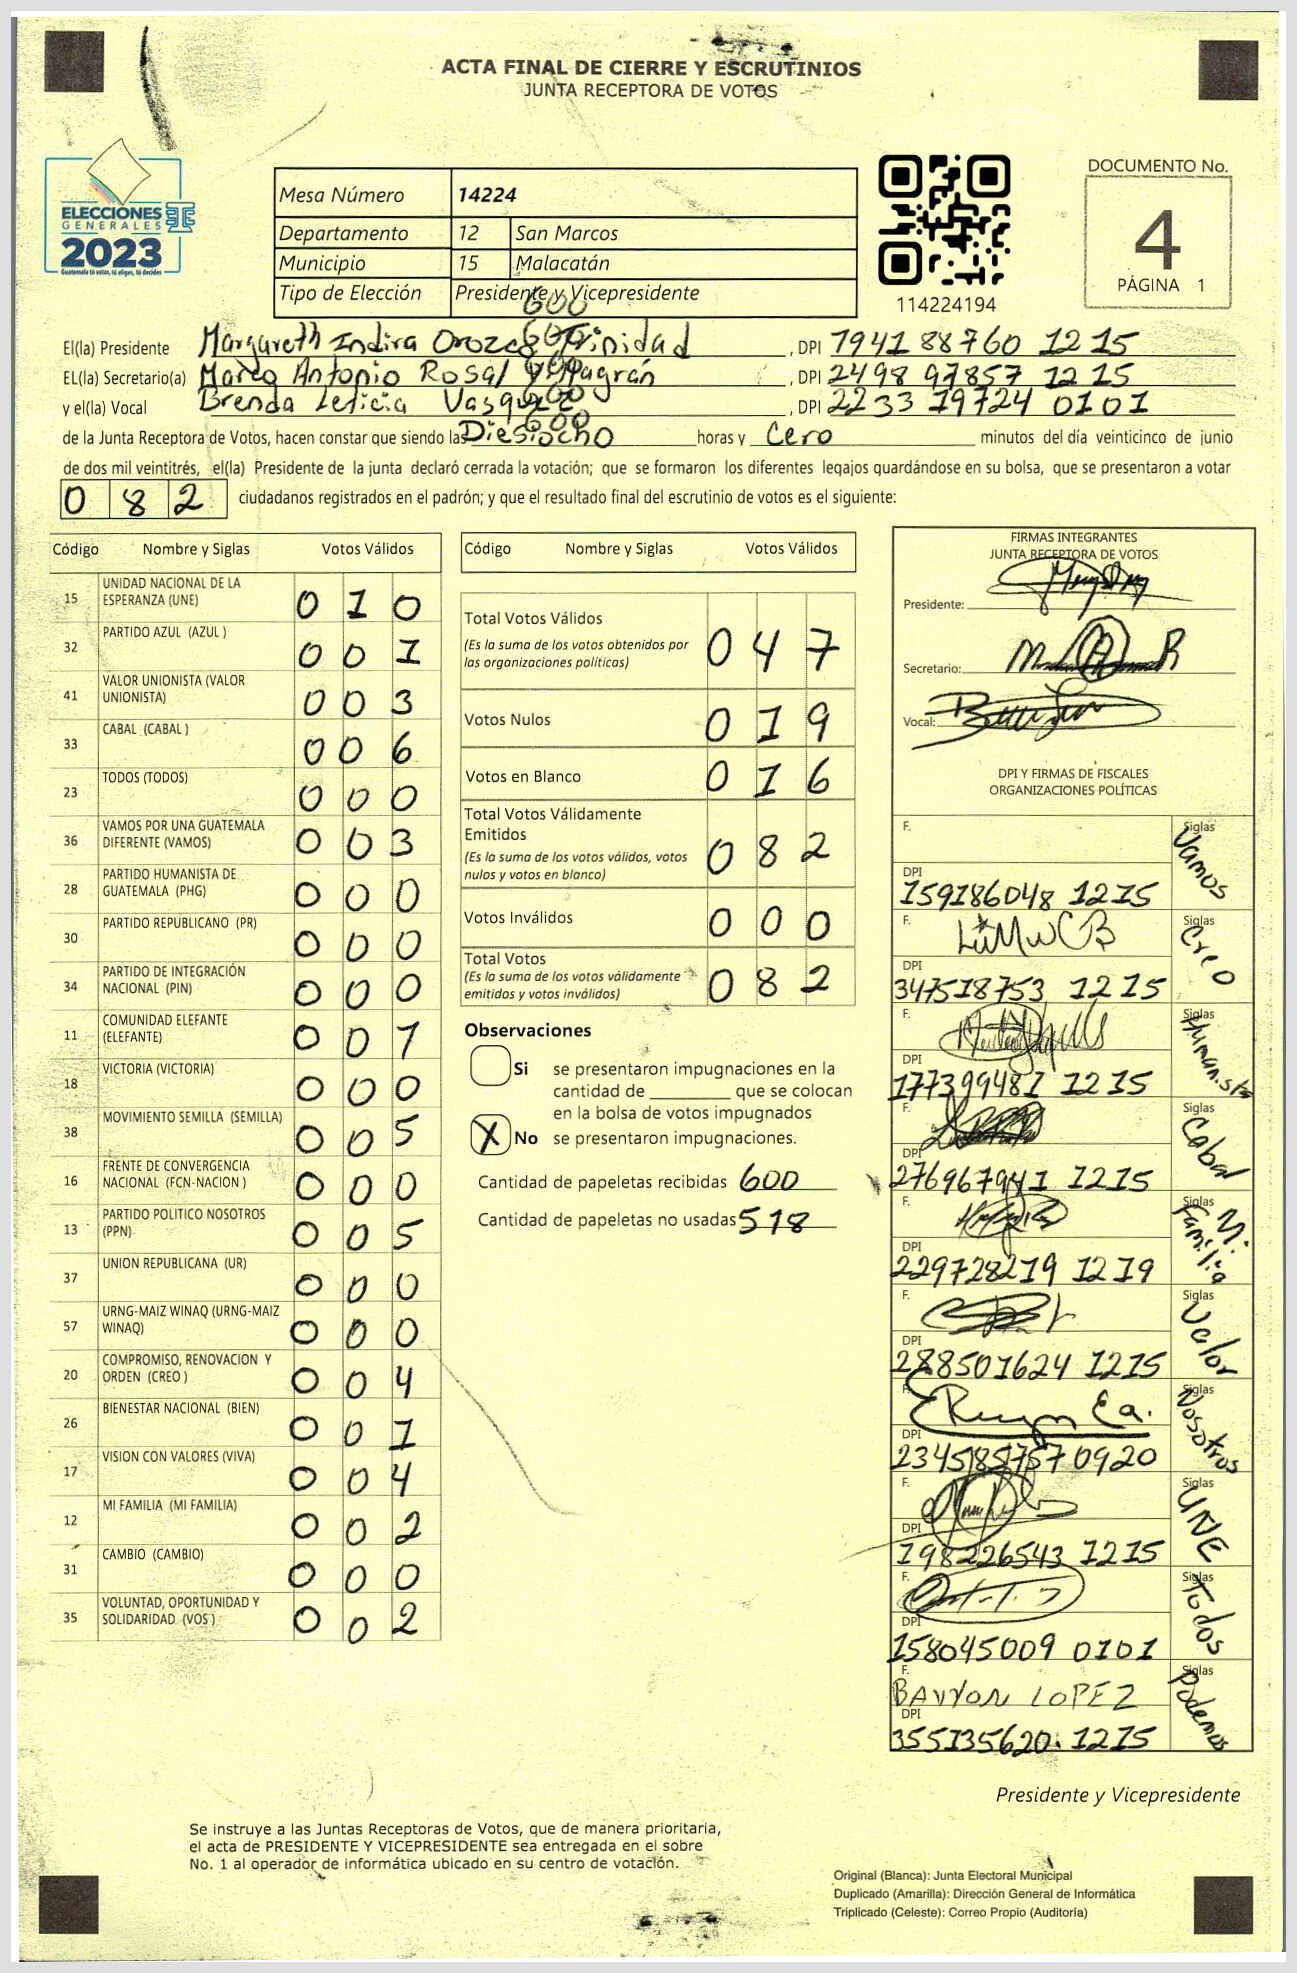 ACTA FINAL DE CIERRE Y ESCRUTINIOS
JUNTA RECEPTORA DE VOTOS
ELECCIONES
GENERALES
2023
Guatemala tú votas, tú eliges, tú decides
Mesa Número 14224
Departamento 12 San Marcos
Municipio 15 Malacatán
Tipo de Elección Presidente y Vicepresidente
114224194
DOCUMENTO No.
4
PÁGINA 1
600
600
600
600
600
El(la) Presidente Margareth Indira Orozco Trinidad, DPI 794188760 1215
EL(la) Secretario(a) Marco Antonio Rosal, DPI 2498 97857 1215
y el(la) Vocal Brenda Leticia Vasquez, DPI 2233 19724 0101
de la Junta Receptora de Votos, hacen constar que siendo las Diesiocho horas y Cero minutos del día veinticinco de junio
de dos mil veintitrés, el(la) Presidente de la junta declaró cerrada la votación; que se formaron los diferentes legajos guardándose en su bolsa, que se presentaron a votar
0 8 2 ciudadanos registrados en el padrón; y que el resultado final del escrutinio de votos es el siguiente:
Código Nombre y Siglas Votos Válidos
15 UNIDAD NACIONAL DE LA ESPERANZA (UNE) 0 1 0
32 PARTIDO AZUL (AZUL ) 0 0 1
41 VALOR UNIONISTA (VALOR UNIONISTA) 0 0 3
33 CABAL (CABAL ) 0 0 6
23 TODOS (TODOS) 0 0 0
36 VAMOS POR UNA GUATEMALA DIFERENTE (VAMOS) 0 0 3
28 PARTIDO HUMANISTA DE GUATEMALA (PHG) 0 0 0
30 PARTIDO REPUBLICANO (PR) 0 0 0
34 PARTIDO DE INTEGRACIÓN NACIONAL (PIN) 0 0 0
11 COMUNIDAD ELEFANTE (ELEFANTE) 0 0 1
18 VICTORIA (VICTORIA) 0 0 0
38 MOVIMIENTO SEMILLA (SEMILLA) 0 0 5
16 FRENTE DE CONVERGENCIA NACIONAL (FCN-NACION ) 0 0 0
13 PARTIDO POLITICO NOSOTROS (PPN) 0 0 5
37 UNION REPUBLICANA (UR) 0 0 0
57 URNG-MAIZ WINAQ (URNG-MAIZ WINAQ) 0 0 0
20 COMPROMISO, RENOVACION Y ORDEN (CREO ) 0 0 4
26 BIENESTAR NACIONAL (BIEN) 0 0 1
17 VISION CON VALORES (VIVA) 0 0 4
12 MI FAMILIA (MI FAMILIA) 0 0 2
31 CAMBIO (CAMBIO) 0 0 0
35 VOLUNTAD, OPORTUNIDAD Y SOLIDARIDAD (VOS ) 0 0 2
Código Nombre y Siglas Votos Válidos
Total Votos Válidos 0 4 7
(Es la suma de los votos obtenidos por
las organizaciones políticas)
Votos Nulos 0 1 9
Votos en Blanco 0 1 6
Total Votos Válidamente
Emitidos 0 8 2
(Es la suma de los votos válidos, votos
nulos y votos en blanco)
Votos Inválidos 0 0 0
Total Votos 0 8 2
(Es la suma de los votos válidamente
emitidos y votos inválidos)
Observaciones
Si se presentaron impugnaciones en la
cantidad de ________ que se colocan
en la bolsa de votos impugnados
X No se presentaron impugnaciones.
Cantidad de papeletas recibidas 600
Cantidad de papeletas no usadas 518
FIRMAS INTEGRANTES
JUNTA RECEPTORA DE VOTOS
Presidente:
Secretario:
Vocal:
DPI Y FIRMAS DE FISCALES
ORGANIZACIONES POLÍTICAS
F. Siglas Vamos
DPI 159186048 1215
F. Siglas Creo
DPI 347518753 1215
F. Siglas Humanista
DPI 177399481 1215
F. Siglas Cabal
DPI 276967941 1215
F. Mi Familia
DPI 229728219 1219
F. Siglas Valor
DPI 288501624 1215
F. Siglas Nosotros
DPI 234585757 0920
F. Siglas UNE
DPI 198226543 1215
F. Siglas Todos
DPI 158045009 0101
F. BAYYON LOPEZ Siglas Podemos
DPI 355135620. 1215
Presidente y Vicepresidente
Se instruye a las Juntas Receptoras de Votos, que de manera prioritaria,
el acta de PRESIDENTE Y VICEPRESIDENTE sea entregada en el sobre
No. 1 al operador de informática ubicado en su centro de votación.
Original (Blanca): Junta Electoral Municipal
Duplicado (Amarilla): Dirección General de Informática
Triplicado (Celeste): Correo Propio (Auditoría)